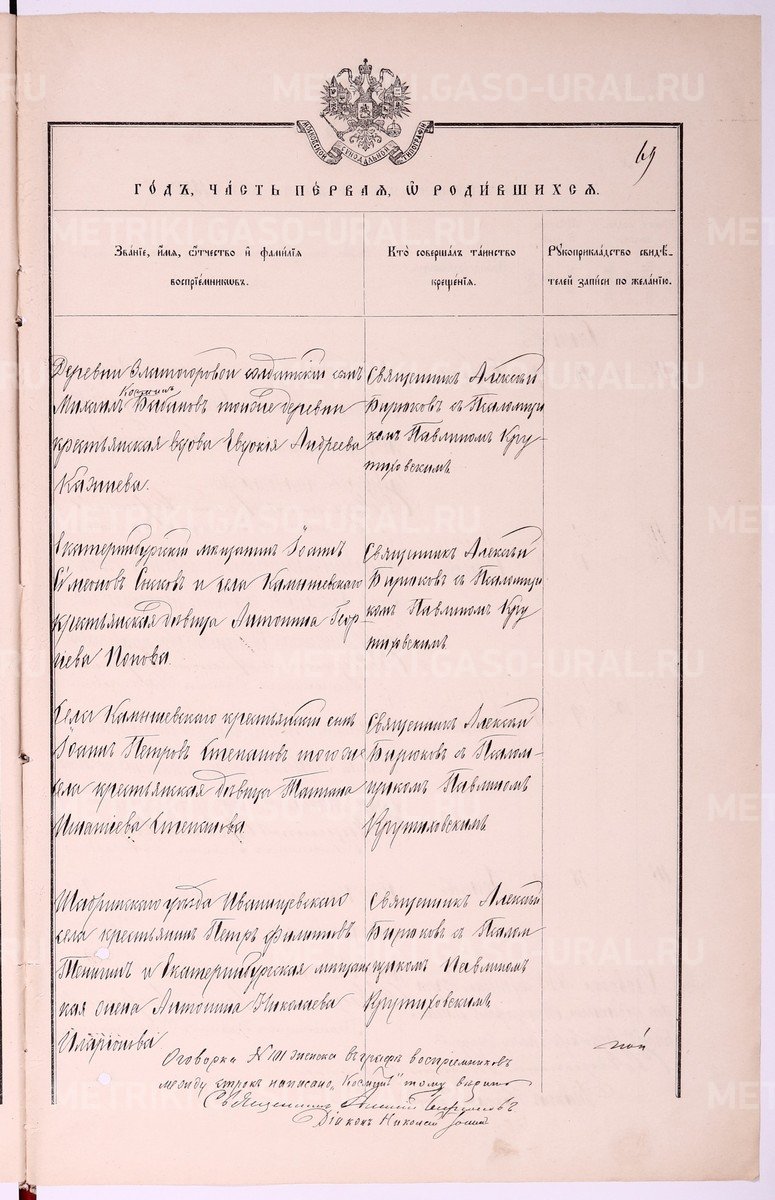 METRIKI.GASO-URAL.RU
МОСКОВСКОЙ СИНОДАЛЬНОЙ ТИПОГРАФІИ
69
ГО́ДЪ, ЧА́СТЬ ПЕ́РВАЯ, Ѡ РОДИ́ВШИХСЯ.
Зва́нїе, и҆́мя, ѻ҆́тчество и҆ фами́лїя
воспрїе́мниковъ.
Кто̀ соверша́лъ та́инство
креще́нїя.
Рꙋкоприкла́дство свидѣ́-
телей за́писи по жела́нїю.
Деревни Златогоровой солдатскій сынъ
Козминъ
Михаилъ Бабиновъ тойже деревни
крестьянская вдова Евдокія Андреева
Священникъ Алексій
Бирюковъ съ Псаломщи
комъ Павлиномъ Кру-
тиховскимъ
Екатеринбургскій мѣщанинъ Іоаннъ
Сѵмеоновъ и села Камышевскаго
крестьянская дѣвица Антонина Геор-
гіева Попова.
Священникъ Алексій
Бирюковъ съ Псаломщи
комъ Павлиномъ Кру
тиховскимъ
Села Камышевскаго крестьянскій сынъ
Іоаннъ Петровъ Степановъ того же
села крестьянская дѣвица Татіана
Игнатіева Степанова
Священникъ Алексій
Бирюковъ съ Псалом-
щикомъ Павлиномъ
Крутиховскимъ
Шадринскаго уѣзда Иванищевскаго
села крестьянинъ Петръ Филипповъ
Тенигинъ и Екатеринбургская мѣщанс
кая жена Антонина Николаева
Иларіонова
Священникъ Алексій
Бирюковъ съ Псалом
щикомъ Павлиномъ
Крутиховскимъ
Оговорка № 101 записи въ графѣ воспріемниковъ
между строкъ написано „Козминъ" тому вѣрить
Священникъ Алексій Бирюковъ
Діаконъ Николай